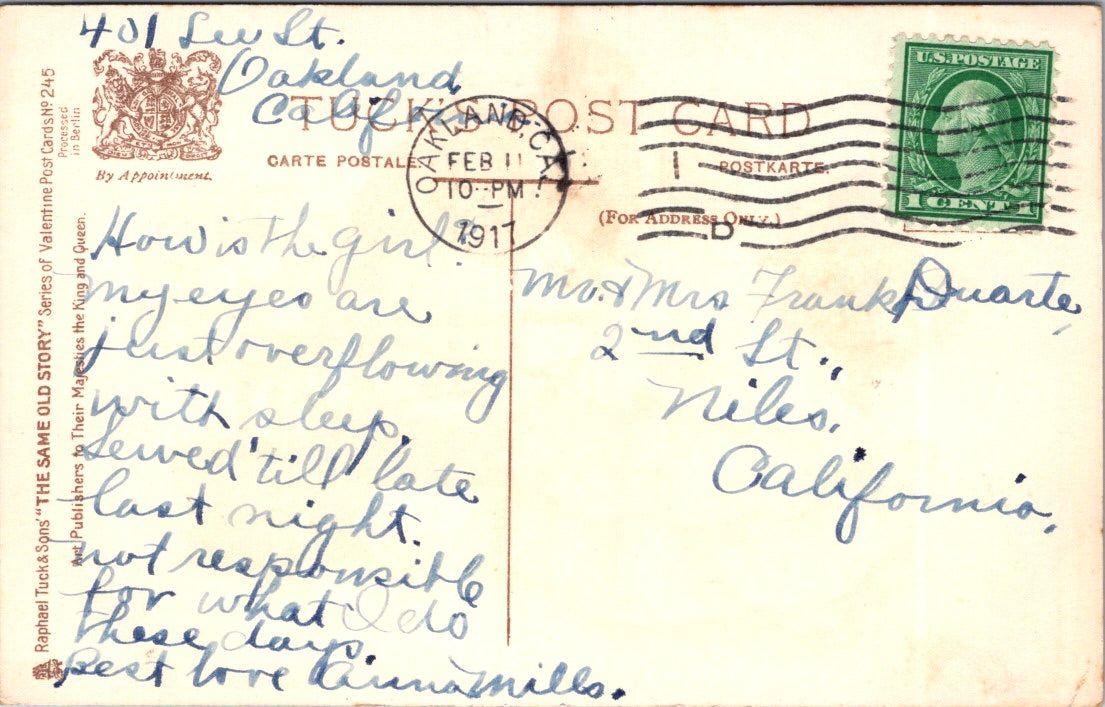 401 Lee St.
Oakland,
Calif.
TUCK'S POST CARD
CARTE POSTALE
POSTKARTE.
(FOR ADDRESS ONLY.)
By Appointment.
Raphael Tuck & Sons' "THE SAME OLD STORY" Series of Valentine Post Cards Nº 245
Processed
in Berlin
Art Publishers to Their Majesties the King and Queen.
OAKLAND, CAL.
FEB 11
10 PM
1917
1
D
U.S. POSTAGE
1 CENT 1
How is the girl?
my eyes are
just overflowing
with sleep.
Sewed 'till late
last night.
not responsible
for what I do
these days.
Best love Anna Mills.
Mr. & Mrs Frank Duarte,
2nd St.,
Niles,
California.